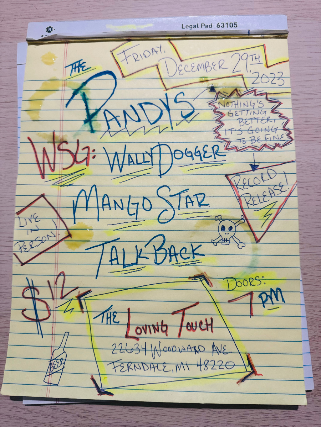 Legal Pad 63105
FRIDAY,
DECEMBER 29TH,
2023
THE
DANDYS
NOTHING'S
GETTING
BETTER/
IT'S GOING
TO BE FINE
WSG: WALLY DOGGER
RECORD
RELEASE!
MANGO STAR
LIVE
IN
PERSON!
TALK BACK
$12
DOORS:
7 PM
THE LOVING TOUCH
22634 WOODWARD AVE
FERNDALE, MI 48220
BEER